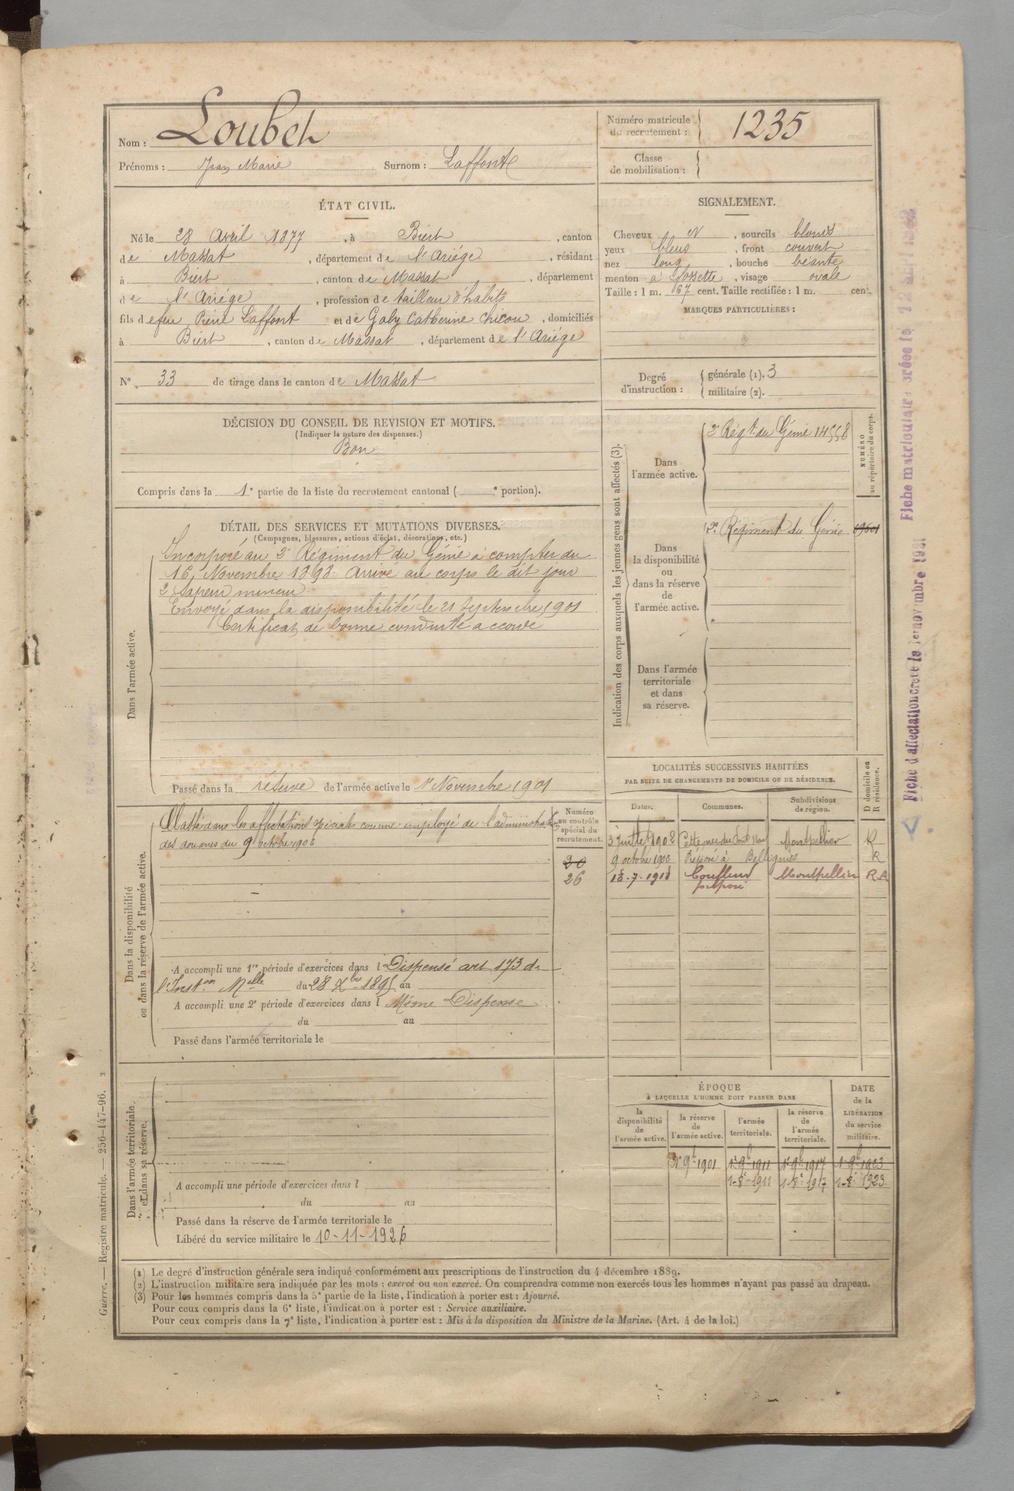 Nom : Loubet
Prénoms : Jean Marie Surnom : Laffont
Numéro matricule du recrutement : 1235
Classe de mobilisation :
ÉTAT CIVIL.
Né le 28 Avril 1877, à Biert, canton
de Massat, département de l'Ariége, résidant
à Biert, canton de Massat, département
de l'Ariége, profession de tailleur d'habits
fils de feu Pierre Laffont et de Galy Catherine, domiciliés
à Biert, canton de Massat, département de l'Ariége
N° 33 de tirage dans le canton de Massat
SIGNALEMENT.
Cheveux N, sourcils blonds
yeux bleus, front couvert
nez long, bouche
menton à fossette, visage ovale
Taille : 1 m. 67 cent. Taille rectifiée : 1 m. cent.
MARQUES PARTICULIÈRES :
Degré d'instruction : générale (1). 3
militaire (2).
DÉCISION DU CONSEIL DE REVISION ET MOTIFS.
(Indiquer la nature des dispenses.)
Bon
Compris dans la 1e partie de la liste du recrutement cantonal ( e portion).
DÉTAIL DES SERVICES ET MUTATIONS DIVERSES.
(Campagnes, blessures, actions d'éclat, décorations, etc.)
Dans l'armée active.
Incorporé au 2e Régiment du Génie à compter du
16 Novembre 1898. Arrivé au corps le dit jour
2e Sapeur mineur
Envoyé dans la disponibilité le 21 Septembre 1901
Certificat de bonne conduite accordé
Passé dans la réserve de l'armée active le 1er Novembre 1901
Indication des corps auxquels les jeunes gens sont affectés (3).
NUMÉRO au répertoire du corps.
Dans l'armée active.
2e Régt. du Génie 14558
Dans la disponibilité ou dans la réserve de l'armée active.
2e Régiment du Génie
Dans l'armée territoriale et dans sa réserve.
Dans la disponibilité ou dans la réserve de l'armée active.
Classé dans les affectations spéciales comme employé de l'administon
des douanes du 9 octobre 1906
Numéro au contrôle spécial du recrutement.
30
26
A accompli une 1re période d'exercices dans l Dispensé art 173 de
l'Inston Melle du 28 Xbre 1895 au
A accompli une 2e période d'exercices dans l Même Dispense
du au
Passé dans l'armée territoriale le
LOCALITÉS SUCCESSIVES HABITÉES
PAR SUITE DE CHANGEMENTS DE DOMICILE OU DE RÉSIDENCE.
Dates. Communes. Subdivisions de région. D domicile ou R résidence.
3 juillet 1908 Montpellier R
9 octobre R
Montpellier
Dans l'armée territoriale et dans sa réserve.
A accompli une période d'exercices dans l
du au
Passé dans la réserve de l'armée territoriale le
Libéré du service militaire le 10-11-1926
ÉPOQUE
À LAQUELLE L'HOMME DOIT PASSER DANS
la disponibilité de l'armée active.
la réserve de l'armée active.
l'armée territoriale.
la réserve de l'armée territoriale.
DATE de la LIBÉRATION du service militaire.
1er 9bre 1901 1er 9bre 1911 1er 9bre 1917 1er 9bre 1923
(1) Le degré d'instruction générale sera indiqué conformément aux prescriptions de l'instruction du 4 décembre 1889.
(2) L'instruction militaire sera indiquée par les mots : exercé ou non exercé. On comprendra comme non exercés tous les hommes n'ayant pas passé au drapeau.
(3) Pour les hommes compris dans la 5e partie de la liste, l'indication à porter est : Ajourné.
Pour ceux compris dans la 6e liste, l'indication à porter est : Service auxiliaire.
Pour ceux compris dans la 7e liste, l'indication à porter est : Mis à la disposition du Ministre de la Marine. (Art. 4 de la loi.)
Guerre. — Registre matricule. — 256-147-96.
Fiche d'affectation créée le 1er novembre 1921
Fiche matriculaire créée le